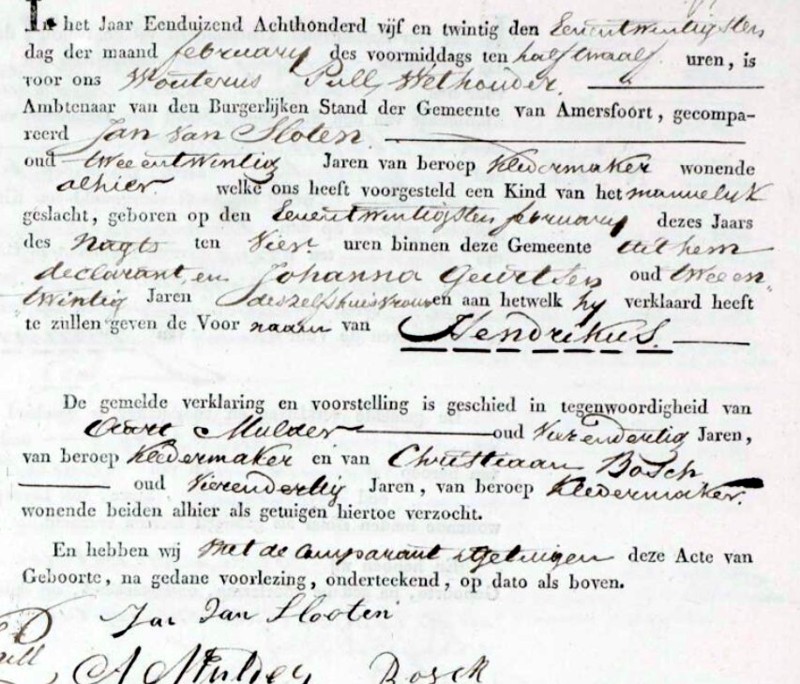 In het Jaar Eenduizend Achthonderd vijf en twintig den Eenentwintigsten
dag der maand february des voormiddags ten half twaalf uren, is
voor ons Wouterus Pull Wethouder.
Ambtenaar van den Burgerlijken Stand der Gemeente van Amersfoort, gecompa-
reerd Jan van Sloten
oud tweeentwintig Jaren van beroep kledermaker wonende
alhier welke ons heeft voorgesteld een Kind van het mannelijk
geslacht, geboren op den Eenentwintigsten february dezes Jaars
des Nagts ten Vier uren binnen deze Gemeente uit hem
declarant, en Johanna Geurtsen oud twee en
twintig Jaren deszelfs huisvrouw en aan hetwelk hy verklaard heeft
te zullen geven de Voor naam van Hendrikus.
De gemelde verklaring en voorstelling is geschied in tegenwoordigheid van
Aart Mulder oud Vierendertig Jaren,
van beroep kledermaker en van Christiaan Bosch
oud Vierendertig Jaren, van beroep kledermaker.
wonende beiden alhier als getuigen hiertoe verzocht.
En hebben wij Met de Comparant getuigen deze Acte van
Geboorte, na gedane voorlezing, onderteekend, op dato als boven.
Jan Van Slooten
Pull
A Mulder Bosch